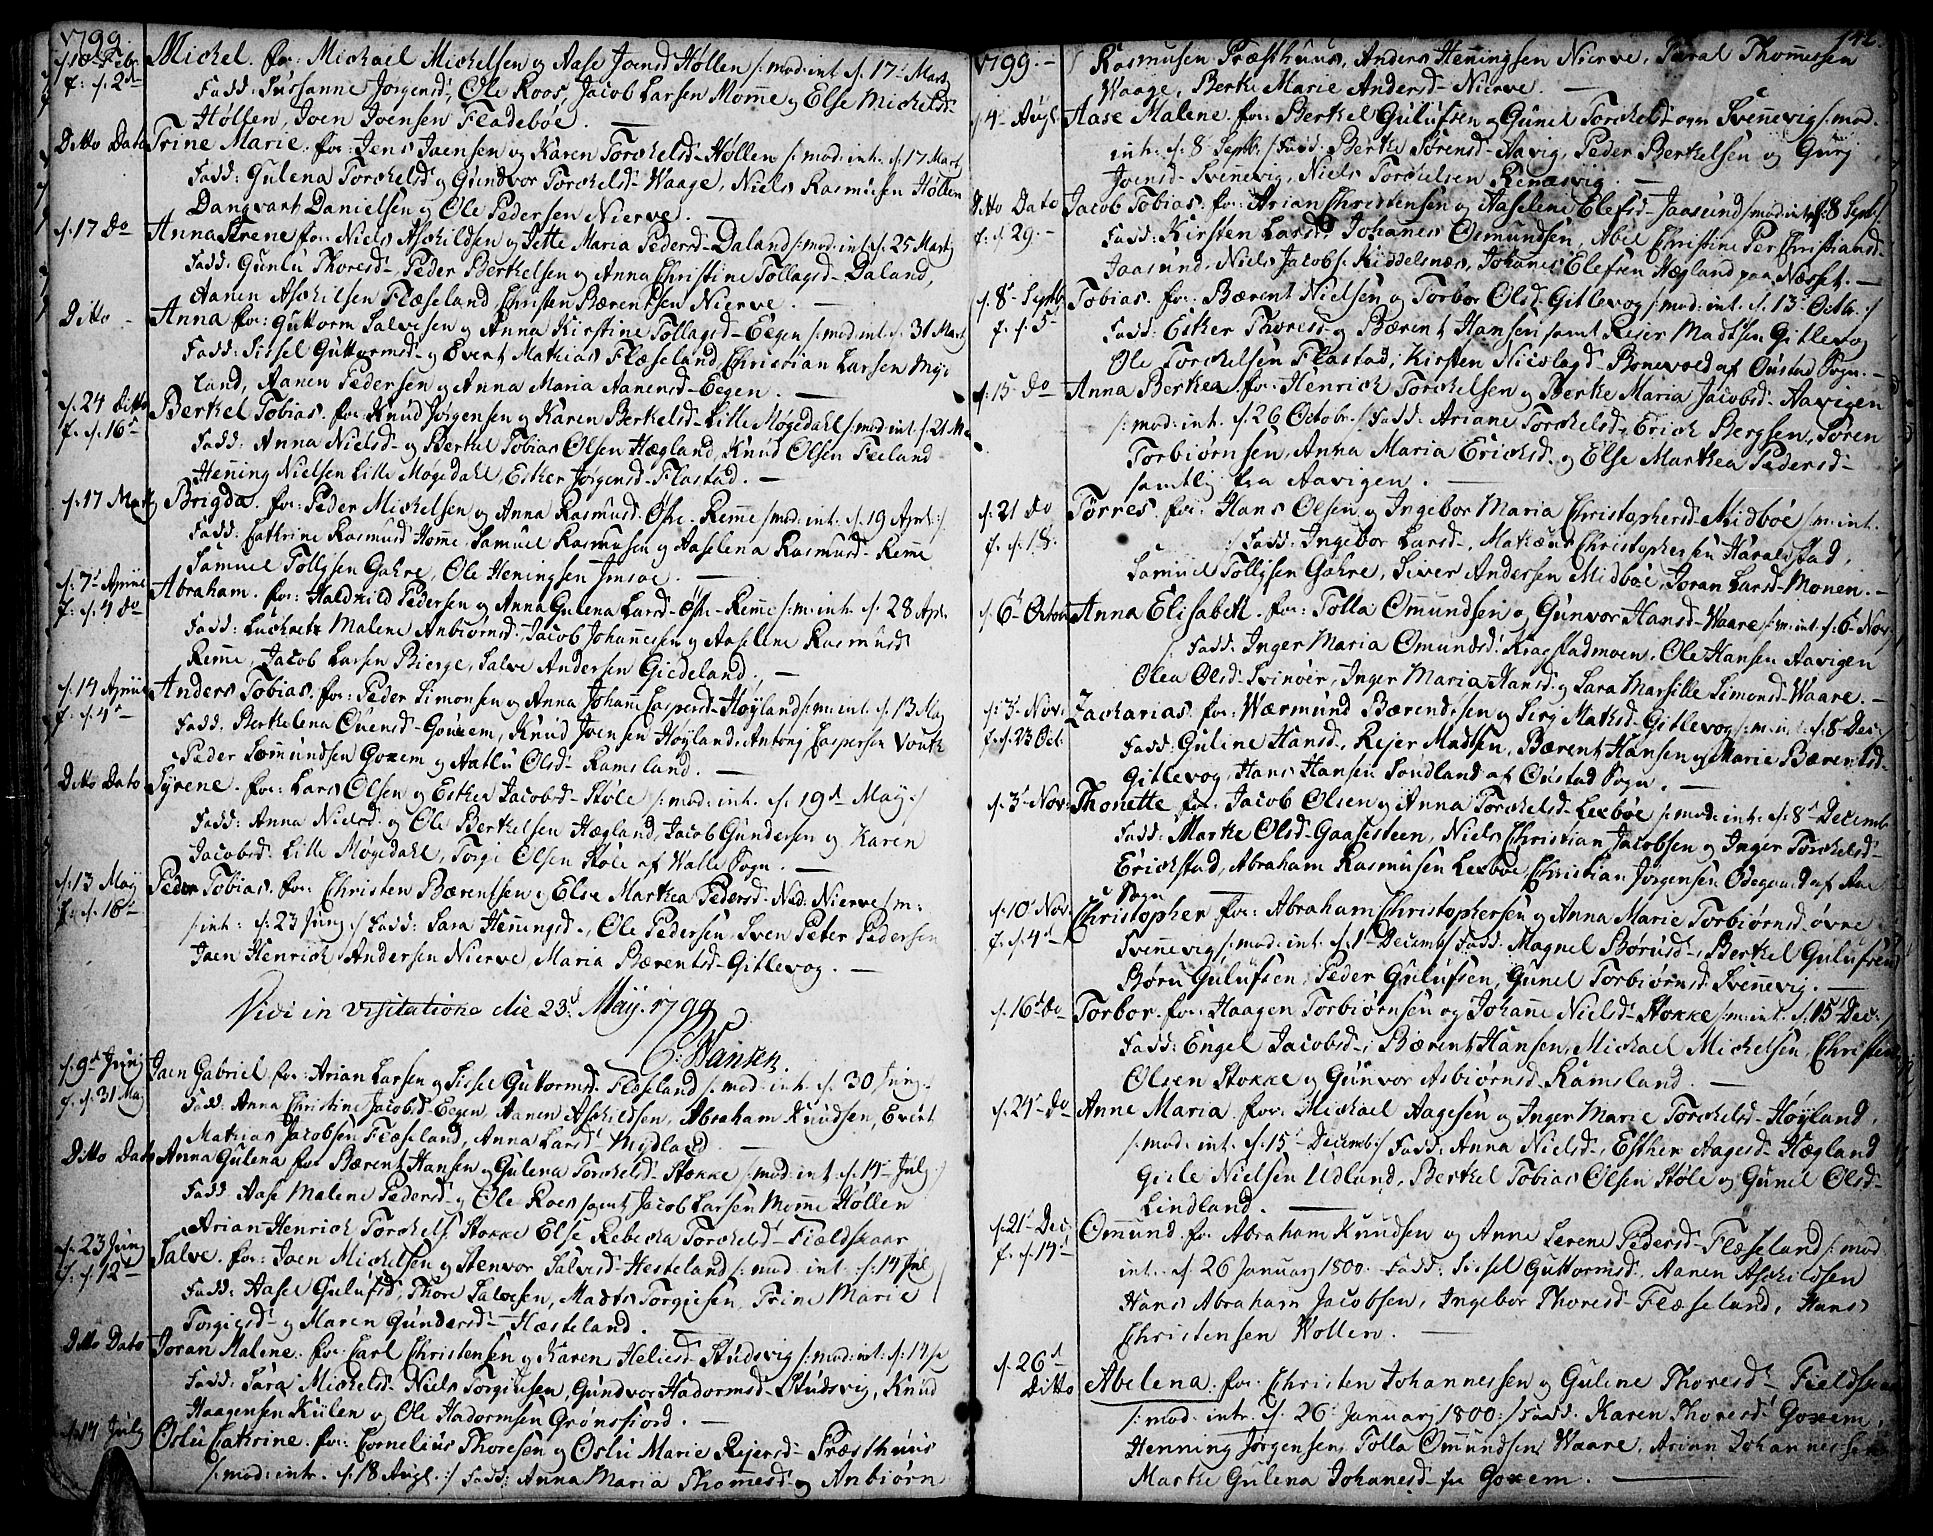 1799.
d. 18 Febr. Michel. for: Michael Michelsen og Aase Joensd Høllen /: mod: int. d. 17 Marti
f: d. 2d Fadd: Sussanne Jørgensd, Ole Roos, Jacob Larsen Momme og Else Michelsd
Høllen, Joen Joensen Fladebøe. —
Ditto Dato Trine Marie. for: Jens Jaensen og Karen Torchelsd Høllen /: mod: int. d. 17 Marti
Fadd: Gulena Torchelsd og Gundvor Torchelsd Waage, Niels Rasmusen Høllen
Dangvart Danielsen og Ole Pedersen Nierve. —
d. 17 Do Anna Serene for: Niels Aschildsen og Jette Maria Pedersd Daland /: mod: int. d. 25 Martj
Fadd: Gunlu Thoresd, Peder Berthelsen og Anna Christine Tollagsd Daland,
Aanen Aschilsen Flæseland, Christen Bærentsen Nierve. —
Ditto — Anna for: Guttorm Salvesen og Anna Kirstine Tollagsd Eegen /: mod: int. d. 31 Marti
Fadd: Sissel Guttormsd og Evert Mathias Flæseland, Christian Larsen Myd
land, Aanen Pedersen og Anna Maria Aanensd Eegen. —
d. 24 Ditto Berthel Tobias. for: Knud Jørgensen og Karen Berthelsd Lille Møgedahl /: mod: int. d. 21
f. d. 16 Fadd: Anna Nielsd og Berthel Tobias Olsen Hægland, Knud Olsen Feeland
Henning Nielsen Lille Møgedahl, Esther Jørgensd Flastad. —
d. 17 Martj Brigda. for: Peder Michelsen og Anna Rasmusd Øfre Remme /: mod: int. d. 19 Apr: /
Fadd: Cathrine Rasmusd Homme, Samuel Rasmusen og Aaselena Rasmusd Remme
Samuel Tollissen Gahre, Ole Heningsen Imsae. —
d. 7 Aprill Abraham. for: Haldkild Pedersen og Anna Gulena Larsd Øfre Remme /: m: int. d. 28 Apr.
f. d. 4 Do Fadd: Malene Anbiørnsd. Jacob Johannesen og Aaselene Rasmusd
Remme, Jacob Larsen Bierge, Salve Andersen Giedeland. —
d. 14 Aprill Anders Tobias. for: Peder Simonsen og Anna Johanne Caspersd Høyland /: m: int. d. 13 May
f. d. 4 Fadd. Berthelena Evensd Gouxem, Knud Joensen Høyland, Antonj Caspersen Vouth
Peder Sommundsen Goxem og Aatlu Olsd Ramsland. —
Ditto Dato Syrene. for: Lars Olsen og Esther Jacobsd Støle /: mod: int. d. 19d May :/
Fadd: Anna Nielsd og Ole Berthelsen Hægland, Jacob Gundersen og Karen
Jacobsd Lille Møgedahl, Torgi Olsen Støle af Walle Sogn. —
d. 13 May Peder Tobias. for: Christen Bærentsen og Else Marthea Pedersd Ned: Nierve /: m:
f. d. 16 /: int: d. 23 Junj :/ Fadd: Sara Henningsd, Ole Pedersen, Sven Peter Pedersen
Jaen Henrich Andersen Nierve, Maria Bærentsd Gitlevog. —
Vidi in visitatione die 23d Maij. 1799
C: Hansen.
d. 9d Junj Jaen Gabriel. for: Arian Larsen og Sissel Guttormsd Flæseland /: mod: int. d. 30 Junj.
f. d. 31 May Fadd. Anna Christine Jacobsd Eegen, Aanen Aschildsen, Abraham Knudsen, Evert
Mathias Jacobsen Flæseland, Anna Larsd Midland —
Ditto Dato Anna Gulena for Bærent Hansen og Gulena Torchelsd Stokke /: mod: int. d. 14 Julj /
Fadd: Aase Malene Pedersd og Ole Roes samt Jacob Larsen Momme Høllen
Arian Henrich Torchels: Stokke Else Rebecka Torchelsd Fieldskaar
d. 23 Junj Salve. for: Joen Michelsen og Stenvor Salvesd Hesteland /: mod: int: d. 14 Julj
f. d. 12d Fadd: Aasel Gulufsd, Thore Salvesen, Madts Torgiesen, Trine Marie
Torgiesd og Maren Gundersd Hæsteland. —
Ditto Dato Joran Malene. for: Carl Christensen og Karen Heliesd Studsvig /: mod: int: d. 14
Fadd: Sara Michelsd Niels Torgiusen, Gundvor Hadormsd Studsvig, Knud
Haagensen Kiilen og Ole Hadormsen Grønsfiord. —
d. 14 Julj Oslu Cathrine. for: Cornelius Thoresen og Oslu Marie Reiersd Præsthuus
/: mod: int. d. 18 Augl. :/ Fadd: Anna Maria Thomesd og Anbiørn
142.
1799. — Rasmusen Præsthuus, Anders Henningsen Nierve, Taral Thommessen
Waage, Berthe Marie Andersd Nierve. —
d. 4 Augl. Aase Malene. for: Berthel Gulufsen og Gunel Torchelsd Svennevig /: mod.
int: d. 8 Septb. :/ Fadd: Berthe Sørensd Aavig, Peder Berthelsen og Gurj
Joensd Svennevig, Niels Torchelsen Renæsvig —
Ditto Dato Jacob Tobias. for: Arian Christensen og Aaselene Elefsd Jaasund /: mod: int. d. 8 Sept:/
f: d. 29. — Fadd: Kirsten Larsd, Johanes Osmundsen, Abel Christine Per Christiansd
Jaasund, Niels Jacobs: Kiddelsnæs, Johanes Elefsen Hægland paa Næsset. —
d. 8 Septb Tobias. for: Bærent Nielsen og Torbor Olsd Gitlevog /: mod: int. d. 13 Octbr. :/
f. d. 5 Fadd: Esther Thoresd og Bærent Hansen samt Reier Madtsen Gitlevog
Ole Torchelsen Flastad, Kirsten Nicolagsd Bonevold af Oustad Sogn. —
d. 15 Do Anna Berthea for: Henrich Torchelsen og Berthe Maria Jacobsd Aavigen
/: mod: int. d. 26 Octobr. :/ Fadd: Ariane Torchelsd, Erich Bergsen, Søren
Torbiørnsen, Anna Maria Erichsd og Else Marthea Pedersd
samtlig fra Aavigen. —
d. 21 Do Torres. for: Hans Olsen og Ingebor Maria Christophersd Midbøe /: m: int.
f. d. 18. / Fadd: Ingebor Larsd, Mathæus Christophersen Haralstad,
Samuel Tollissen Gahre, Siver Andersen Midbøe, Joran Larsd Monen. —
d. 6 Octobr Anna Elisabeth. for: Tolla Omundsen og Gunvor Hansd Waare /: m: int. d. 6 Nov:/
/: Fadd: Inger Maria Omundsd Kragstadmoen, Ole Hansen Aavigen
Olea Olsd Svinøer, Inger Maria Hansd og Sara Marsille Simonsd Waare. —
d: 3 Nov: Zacharias. for: Wærmund Bærendsen og Serj Mathsd Gitlevog /: m: int. d. 8 Dec:/
f. d. 23 Oct. Fadd: Guline Hansd, Rejer Madtsen, Bærent Hansen og Marie Bærentsd
Gitlevog, Hans Hansen Sondland af Oustad Sogn. —
d. 3 Nov: Thonette for. Jacob Olsen og Anna Torchelsd Lexbøe /: mod: int. d. 8d Decemb
Fadd: Marthe Olsd Gaasesteen, Niels Christian Jacobsen og Inger Torchelsd
Erichstad, Abraham Rasmusen Lexbøe, Christian Jørgensen Ødegaard af Aae
Sogn —
d. 10 Nov: Christopher for: Abraham Christophersen og Anna Marie Torbiørnsd øvre
f. d. 4d Svennevig /: mod: int. d. 1 Decemb / Fadd: Magnel Børusd, Berthel Gulufsen
Børu Gulufsen, Peder Gulufsen, Gunel Torbiørnsd Svennevig. —
d. 16 Do Torbor. for: Haagen Torbiørnsen og Johanne Nielsd Stokke /: m: int. d. 15 Dec: /
Fadd: Engel Jacobsd, Bærent Hansen, Michael Michelsen, Christen
Olsen Stokke og Gunvor Asbiørnsd Ramsland. —
d. 24 Do Anne Maria. for: Michael Aagesen og Inger Marie Torchelsd Høyland,
/: mod: int. d. 15 Decemb :/ Fadd: Anna Nielsd, Esther Aagesd Hægland
Giele Nielsen Udland, Berthel Tobias Olsen Støle og Gunel Olsd
Lindland. —
d. 21 Dec. Ommund for Abraham Knudsen og Anne Serene Pedersd Flæseland /: mod.
f. d. 14d int. d. 26 Januarj 1800. Fadd: Sissel Guttormsd, Aanen Aschildsen
Hans Abraham Jacobsen, Ingebor Thoresd Flæseland, Hans
Christensen Hollen. —
d. 26d Ditto Abelena. for: Christen Johannessen og Guline Thoresd Fieldskaar
/: mod: int. d. 26 Januarj 1800: / Fadd. Karen Thoresd Goxem,
Henning Jørgensen, Tolla Omundsen Waare, Arian Johannessen
Marthe Gulena Johanesd fra Goxem. —